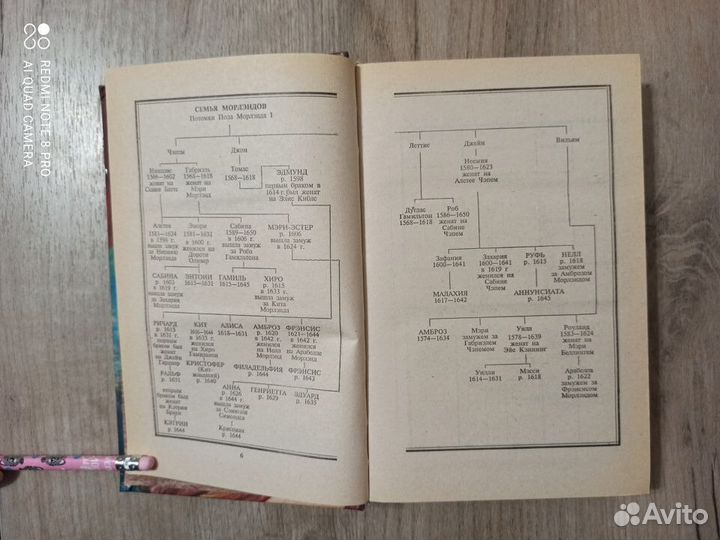 REDMI NOTE 8 PRO
AI QUAD CAMERA
СЕМЬЯ МОРЛЭНДОВ
Потомки Пола Морлэнда I
Чэпем
Джон
Николас
1566—1602
женат на
Габриэль
1568—1618
женат на
Мэри
Морлэнд
Томас
1568—1618
ЭДМУНД
р. 1598
первым браком в
1614 г. был женат
на Эллис Киблс
Алетея
1581—1624
в 1596 г.
вышла замуж
за Несмию
Морлэнда
Эмори
1581—1631
в 1600 г.
женился на
Дороти
Оливер
Сабина
1589—1650
в 1606 г.
вышла замуж
за Роба
Гамильтона
МЭРИ-ЭСТЕР
р. 1606
вышла замуж
в 1624 г.
САБИНА
р. 1603
в 1619 г.
вышла замуж
за Захария
Морлэнда
ЭНТОНИ
1615—1631
ГАМИЛЬ
1615—1645
ХИРО
р. 1615
в 1633 г.
вышла замуж
за Кита
Морлэнда
РИЧАРД
р. 1615
в 1631 г.
первым
браком был
женат
на Джейн
КИТ
1616—1644
в 1633 г.
женился
на Хиро
Гамильтон
АЛИСА
1618—1631
АМБРОЗ
р. 1620
в 1642 г.
женился
на Нелл
Морлэнд
ФРЭНСИС
1621—1644
в 1642 г.
женился
на Арабелле
Морлэнд
РАЛЬФ
р. 1631
КРИСТОФЕР
(Кит-
младший)
р. 1640
ФИЛАДЕЛЬФИЯ
р. 1644
ФРЭНСИС
р. 1643
вторым
браком был
женат
на Кэтрин
Браун
АННА
р. 1626
в 1644 г.
вышла замуж
за Сэмюэля
Симондса
ГЕНРИЕТТА
р. 1629
ЭДУАРД
р. 1635
КЭТРИН
р. 1644
Криспиан
р. 1644
6
Леттис
Джейн
Вильям
Несмия
1580—1623
женат на
Алетее Чэпем
Дуглас
Гамильтон
1568—1618
Роб
1586—1650
женат на
Сабине
Чэпем
Зафания
1600—1641
Захария
1600—1641
в 1619 г.
женился на
Сабине
Чэпем
РУФЬ
р. 1615
НЕЛЛ
р. 1618
замужем
за Амброзом
Морлэндом
МАЛАХИЯ
1617—1642
АННУНСИАТА
р. 1645
АМБРОЗ
1574—1634
Мэри
замужем за
Габриэлем
Чэпемом
Уилл
1578—1639
женат на
Эйе Кэннинг
Роуланд
1583—1624
женат на
Мэри
Беллингем
Уилли
1614—1631
Мэсси
р. 1618
Арабелла
р. 1622
замужем за
Фрэнсисом
Морлэндом
Avito